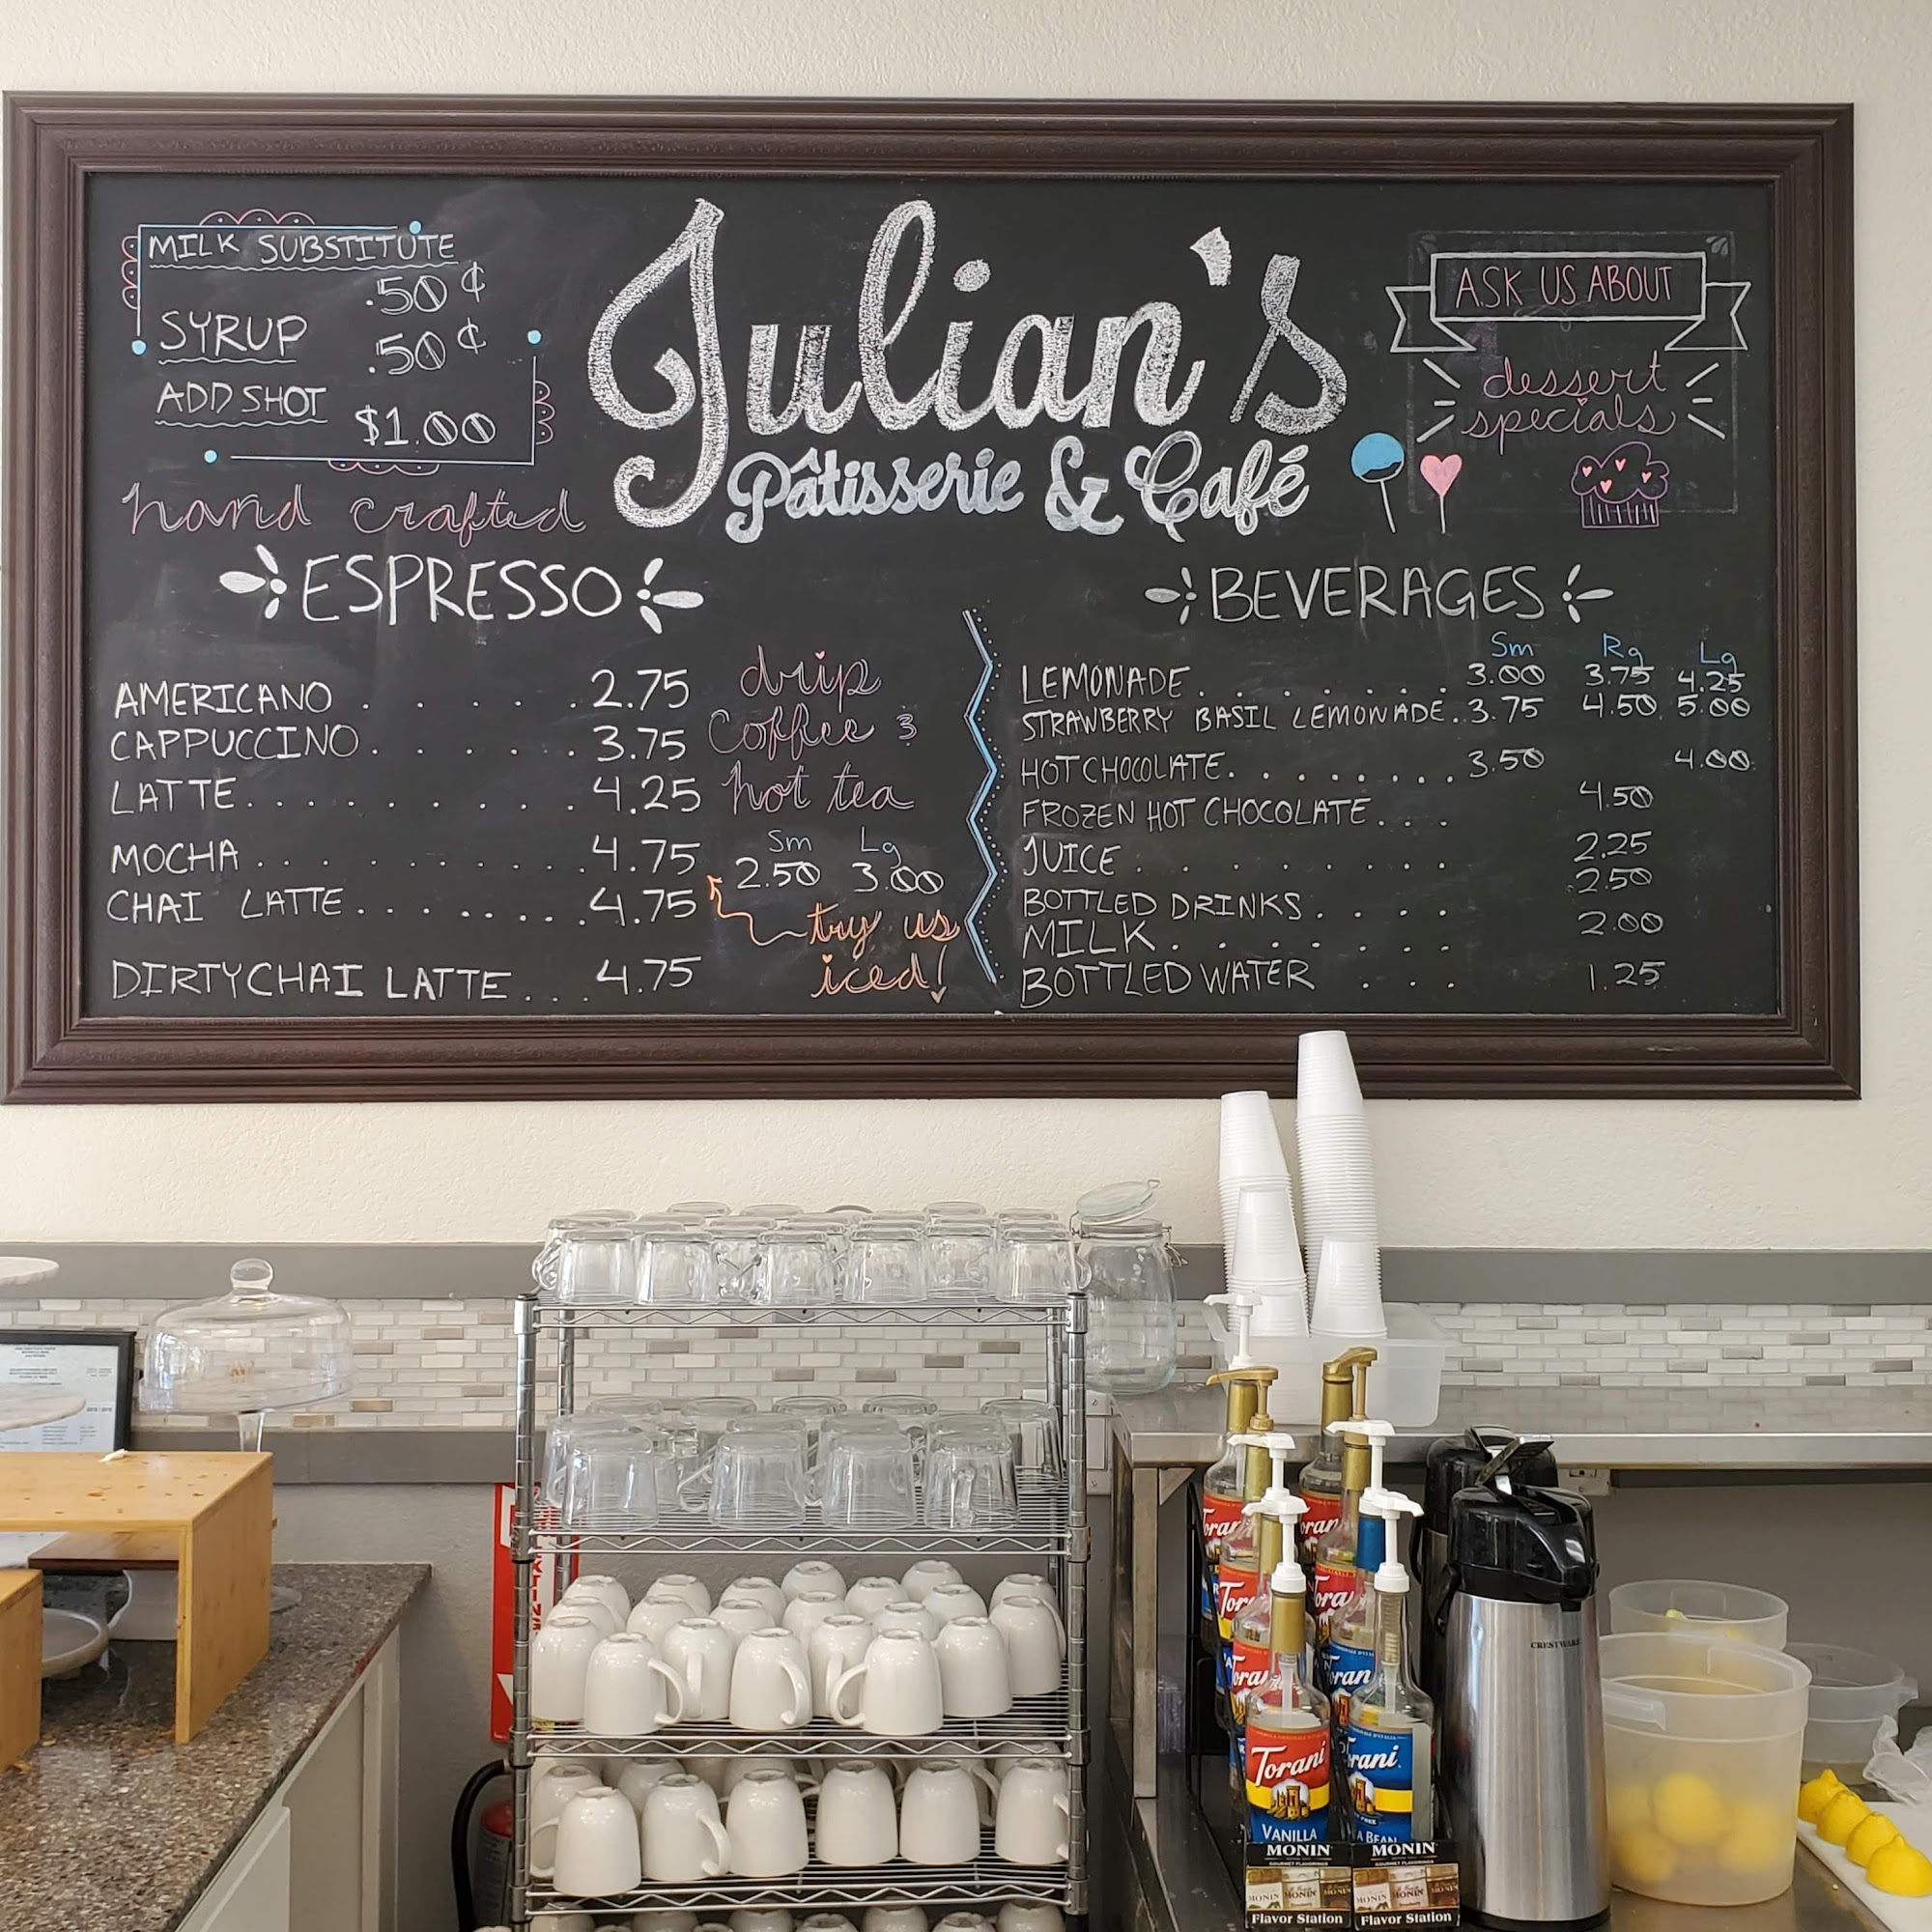 MILK SUBSTITUTE
.50¢
SYRUP
.50¢
ADD SHOT
$1.00
Julian's
Pâtisserie & Café
ASK US ABOUT
dessert
specials
hand crafted
ESPRESSO
AMERICANO . . . . . 2.75
CAPPUCCINO . . . . . 3.75
LATTE . . . . . . . . . . 4.25
MOCHA . . . . . . . . . 4.75
CHAI LATTE . . . . . . . . . 4.75
DIRTY CHAI LATTE . . . 4.75
drip
coffee &
hot tea
Sm Lg
2.50 3.00
try us
iced!
BEVERAGES
Sm Rg Lg
LEMONADE . . . . . . . . 3.00 3.75 4.25
STRAWBERRY BASIL LEMONADE . 3.75 4.50 5.00
HOT CHOCOLATE . . . . . . . . 3.50 4.00
FROZEN HOT CHOCOLATE . . . 4.50
JUICE . . . . . . . 2.25
BOTTLED DRINKS . . . . 2.50
MILK . . . . . . . 2.00
BOTTLED WATER . . . 1.25
Torani
VANILLA
MONIN
GOURMET FLAVORINGS
MONIN MONIN MONIN
Flavor Station
Torani
BEAN
MONIN
GOURMET FLAVORINGS
MONIN MONIN MONIN
Flavor Station
CRESTWARE